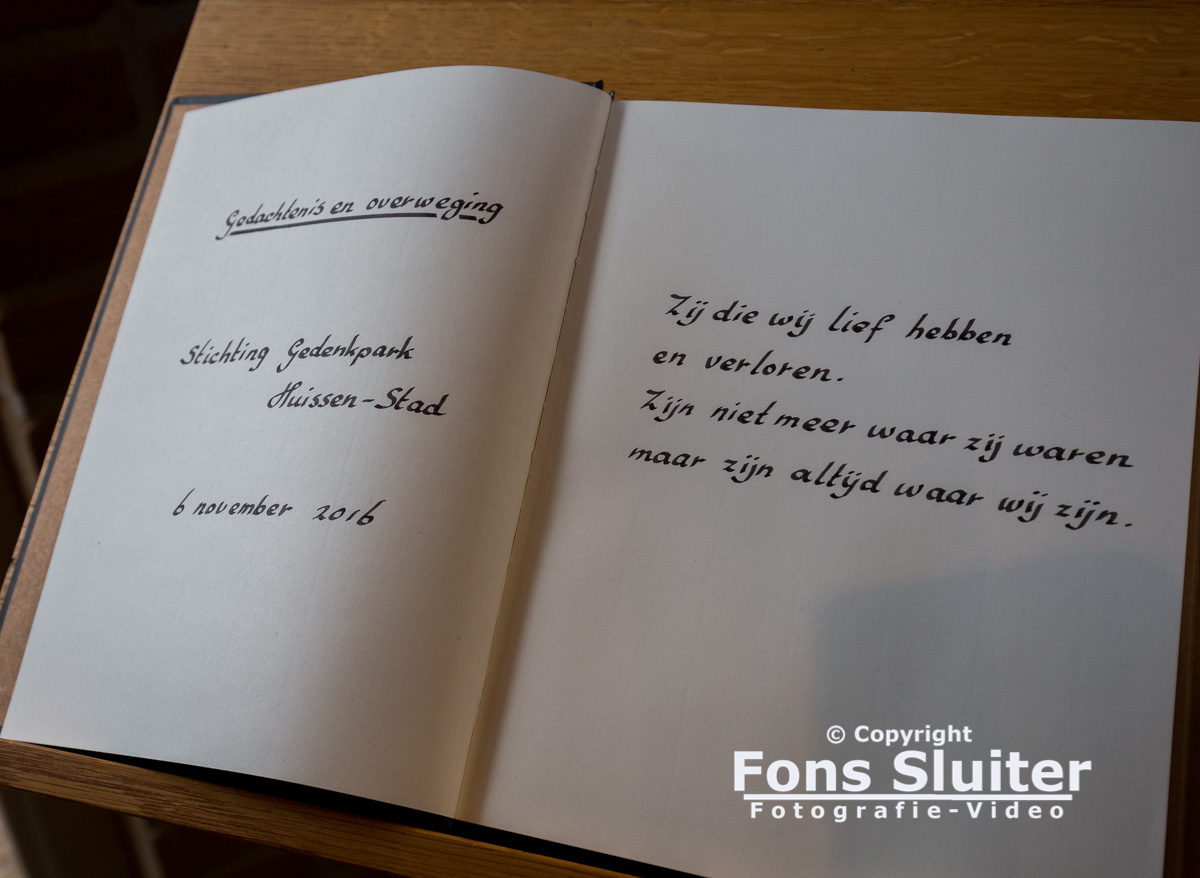 Gedachtenis en overweging
Stichting Gedenkpark
Huissen-Stad
6 november 2016
Zij die wij lief hebben
en verloren.
Zijn niet meer waar zij waren
maar zijn altijd waar wij zijn.
© Copyright
Fons Sluiter
Fotografie-Video